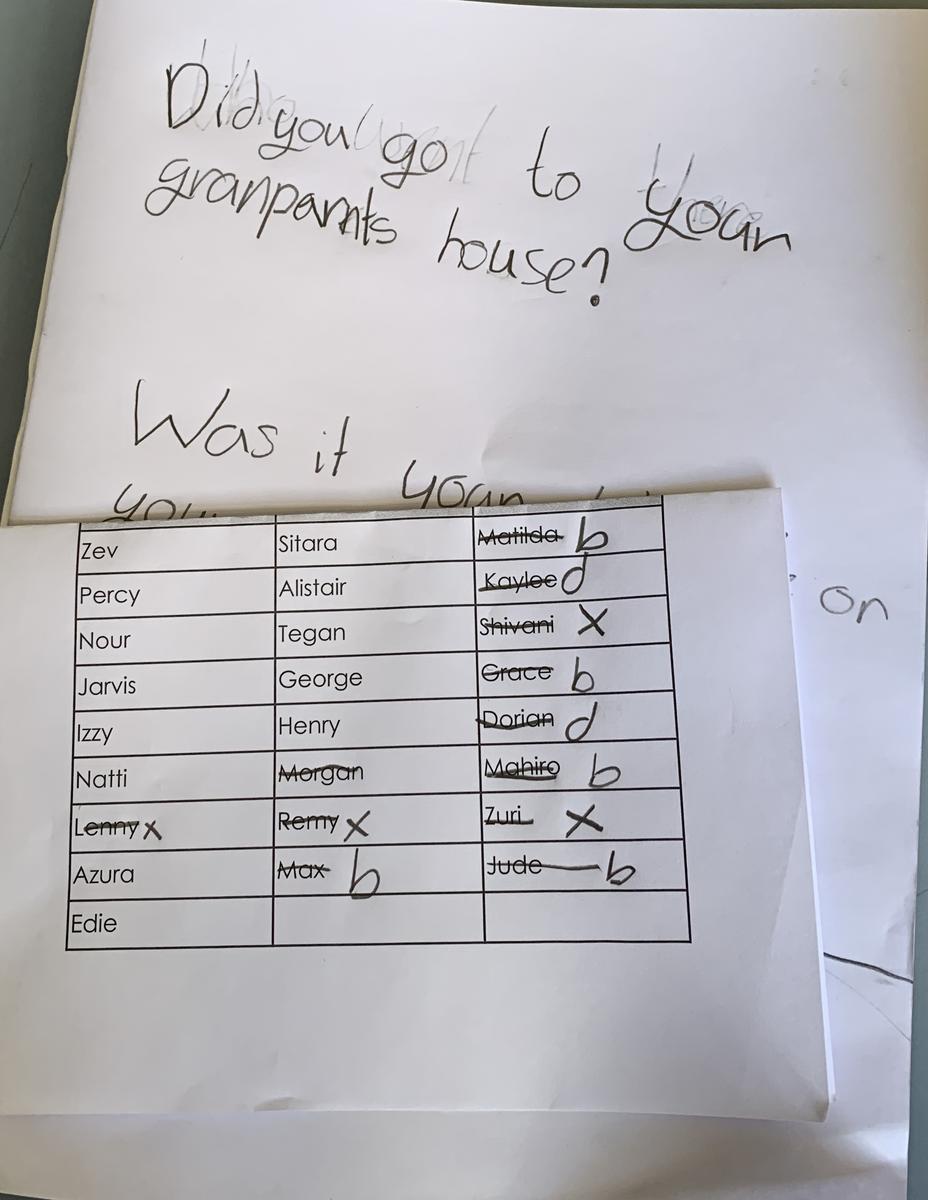 Did you go to your
granparnts house?
Was it your
on
Zev Sitara Matilda b
Percy Alistair Kaylee d
Nour Tegan Shivani X
Jarvis George Grace b
Izzy Henry Dorian d
Natti Morgan Mahiro b
Lenny x Remy X Zuri X
Azura Max b Jude b
Edie